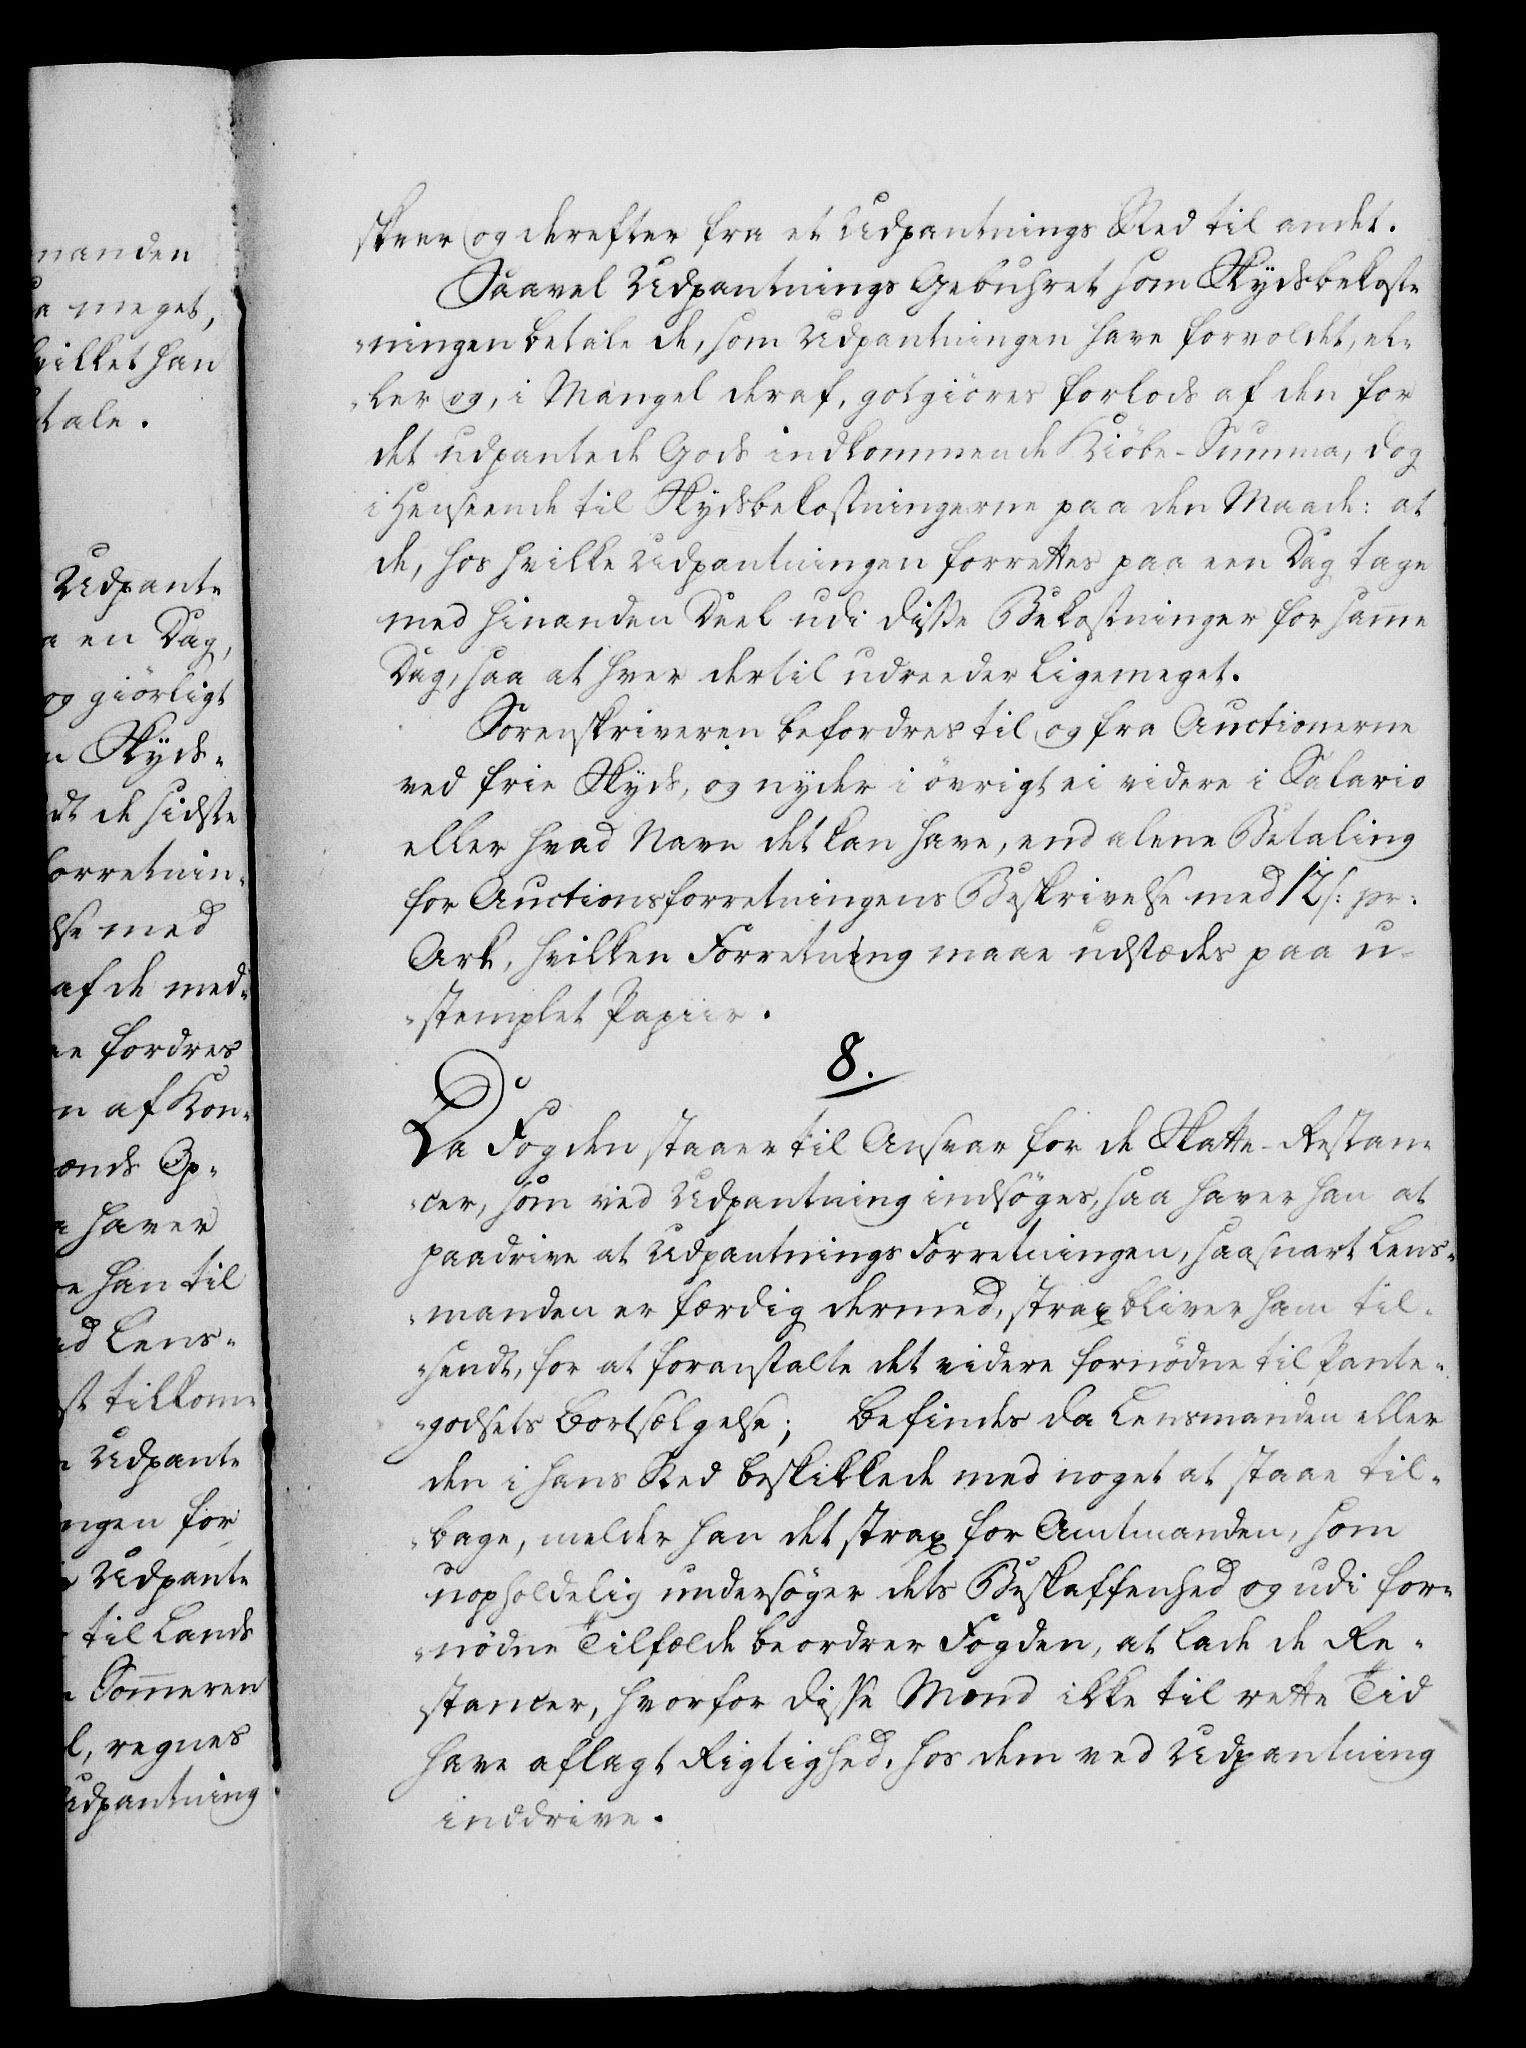 manden
a meget,
hvilket han
tale.
Udpante
a en Dag,
og giörligt
n Skyds-
dt de sidste
orretnin-
lse med
af de med-
ne fordres
n af Kon-
ænds Op-
a haver
e han til
ed Lens-
st tilkom-
n Udpante
ngen for
Udpante
til Lands
Sommeren
l, regnes
Udpantning
skeer og derefter fra et Udpantnings Sted til andet.
Saavel Udpantnings Gebuhret som Skydsbekoste
-ningen betale de, som Udpantningen have forvoldet, el-
-ler og, i Mangel deraf, gotgiöres forlods af den for
det udpantede Gods indkommende Kiöbe-Summa, dog
i Henseende til Skydsbekostningerne paa den Maade: at
de, hos hvilke Udpantningen forrettes paa een Dag tage
med hinanden Deel udi disse Bekostninger for samme
Dag, saa at hver dertil udreeder ligemeget.
Sorenskriveren befordres til og fra Auctionerne
ved frie Skyds, og nyder i övrigt ei videre i Salario
eller hvad Navn det kan have, end alene Betaling
for Auctionsforretningens Beskrivelse med 12 s: pr:
Ark, hvilken Forretning maae udstædes paa u-
-stemplet Papiir.
8.
Da Fogden staaer til Ansvar for de Skatte-Restan-
-cer, som ved Udpantning indsöges, saa haver han at
paadrive at Udpantnings Forretningen, saasnart Lens-
-manden er færdig dermed, strax bliver ham til-
-hendt, for at foranstalte det videre fornödne til Pante-
-godsets Bortsælgelse; befindes da Lensmanden eller
den i hans Sted beskikkede med noget at staae til-
-bage, melder han det strax for Amtmanden, som
uopholdelig undersöger dets Beskaffenhed og udi for-
-nödne Tilfælde beordrer Fogden, at lade de Re-
stancer, hvorfor disse Mænd ikke til rette Tid
have aflagt Rigtighed, hos dem ved Udpantning
inddrive.